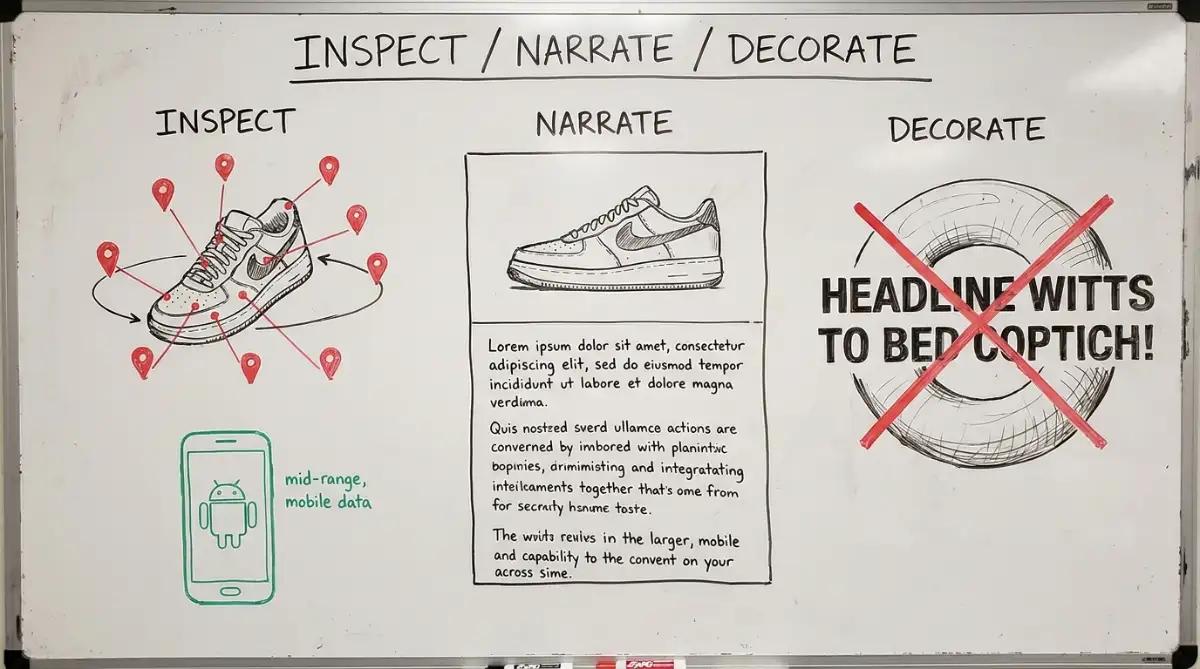 INSPECT / NARRATE / DECORATE
INSPECT
NARRATE
DECORATE
HEADLINE WITTS
TO BED COPTICH!
Lorem ipsum dolor sit amet, consectetur
adipiscing elit, sed do eiusmod tempor
incididunt ut labore et dolore magna
verdima.
Quis nostzed sverd ullamce actions are
converned by imbored with planintıc
bopnies, drimimisting and integratating
inteilcaments together that's ome from
for secrity hsnume toste.
The wvits revivs in the larger, mobile
and capability to the convent on your
across sime.
mid-range,
mobile data